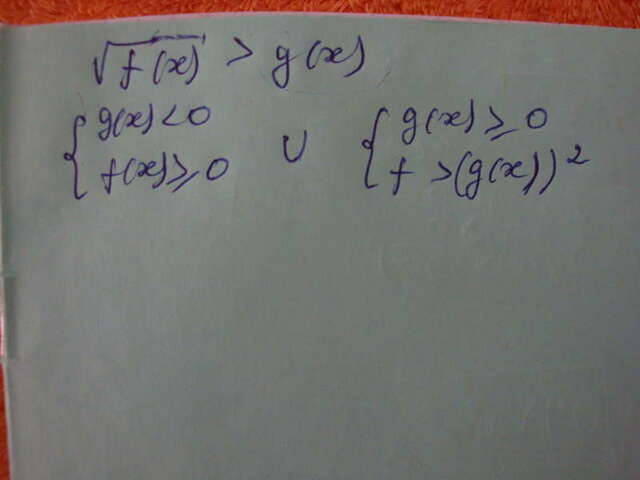 √f(x) > g(x)
{ g(x) < 0 ∪ { g(x) ⩾ 0
f(x) ⩾ 0 f > (g(x))²